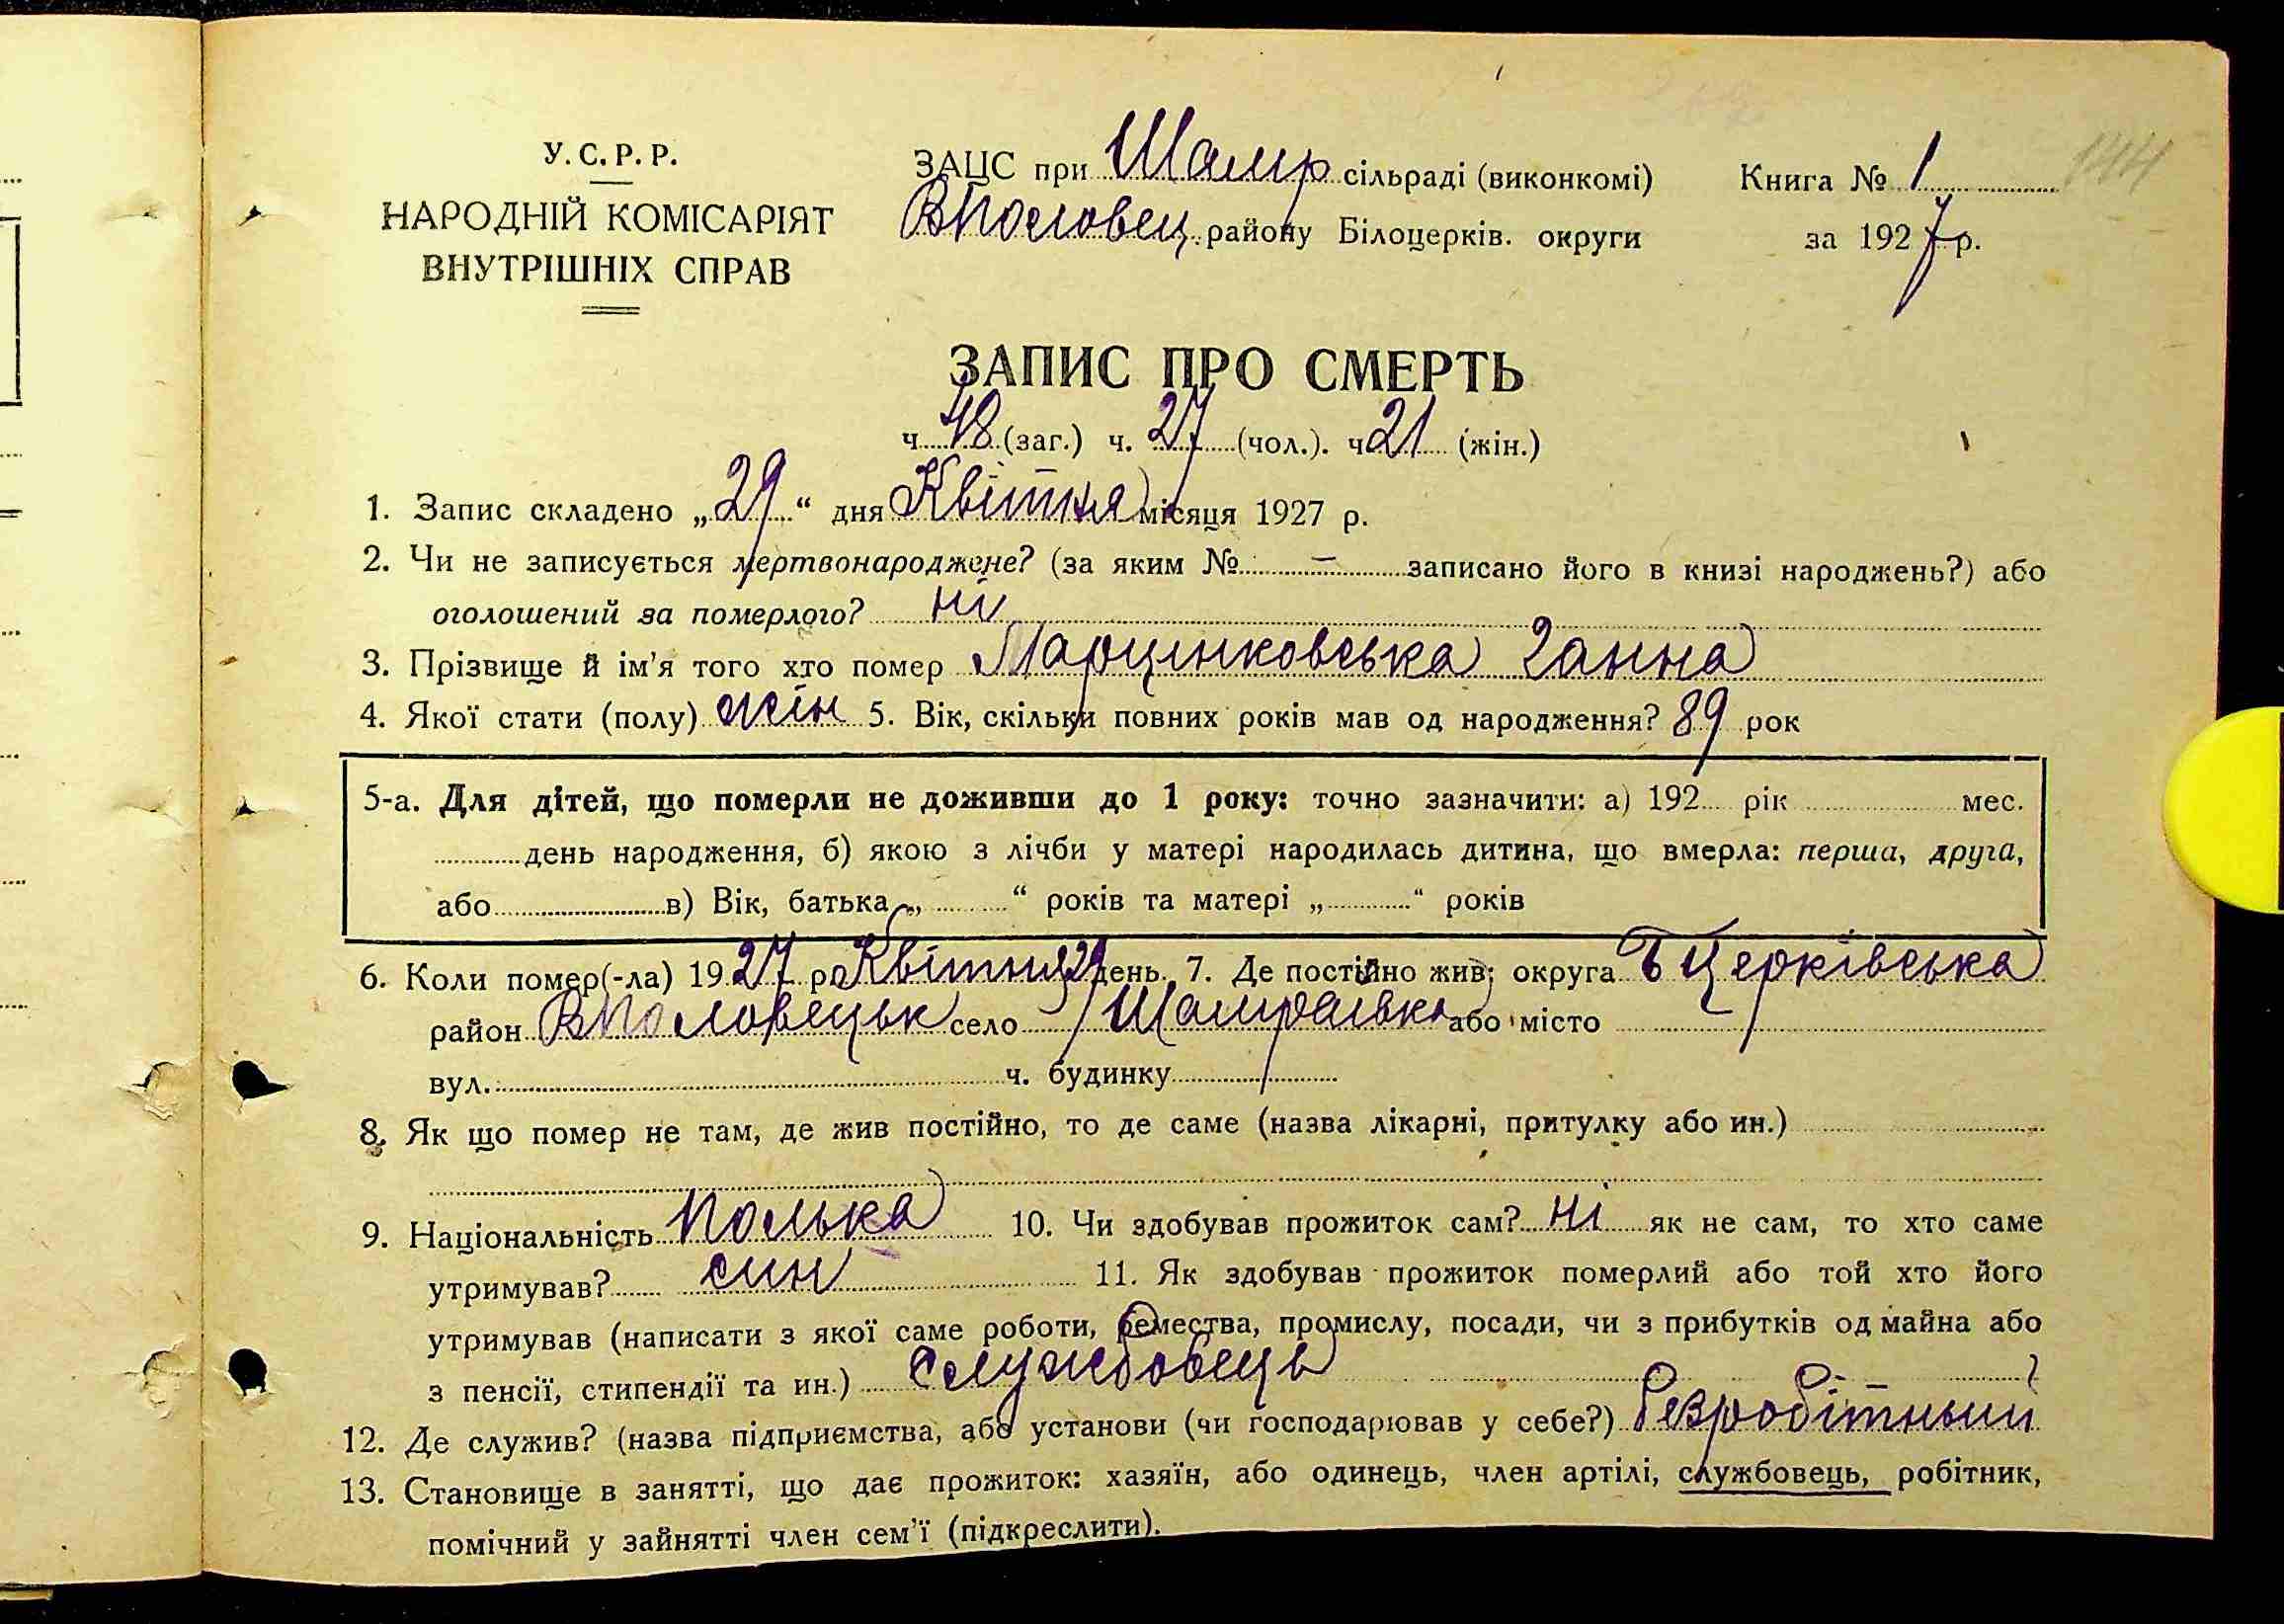 У. С. Р. Р.
НАРОДНІЙ КОМІСАРІЯТ
ВНУТРІШНІХ СПРАВ
ЗАЦС при Шамр сільраді (виконкомі)
ВПоловец. району Білоцерків. округи
Книга № 1
за 1927 р.
144
ЗАПИС ПРО СМЕРТЬ
ч 48 (заг.) ч. 27 (чол.). ч 21 (жін.)
1. Запис складено „29“ дня Квітня місяця 1927 р.
2. Чи не записується мертвонароджене? (за яким № — записано його в книзі народжень?) або
оголошений за померлого? ні
3. Прізвище й ім'я того хто помер Марцинковська Ганна
4. Якої стати (полу) жін 5. Вік, скільки повних років мав од народження? 89 рок
5-а. Для дітей, що померли не доживши до 1 року: точно зазначити: а) 192 рік мес.
день народження, б) якою з лічби у матері народилась дитина, що вмерла: перша, друга,
або в) Вік, батька „ “ років та матері „ “ років
6. Коли помер(-ла) 1927 р Квітня 29 день. 7. Де постійно жив: округа БЦерківська
район ВПоловецьк село Шамраївка або місто
вул. ч. будинку
8. Як що помер не там, де жив постійно, то де саме (назва лікарні, притулку або ин.)
9. Національність полька 10. Чи здобував прожиток сам? ні як не сам, то хто саме
утримував? син 11. Як здобував прожиток померлий або той хто його
утримував (написати з якої саме роботи, ремества, промислу, посади, чи з прибутків од майна або
з пенсії, стипендії та ин.) службовець
12. Де служив? (назва підприємства, або установи (чи господарював у себе?) безробітный
13. Становище в занятті, що дає прожиток: хазяїн, або одинець, член артілі, службовець, робітник,
помічний у зайнятті член сем'ї (підкреслити).